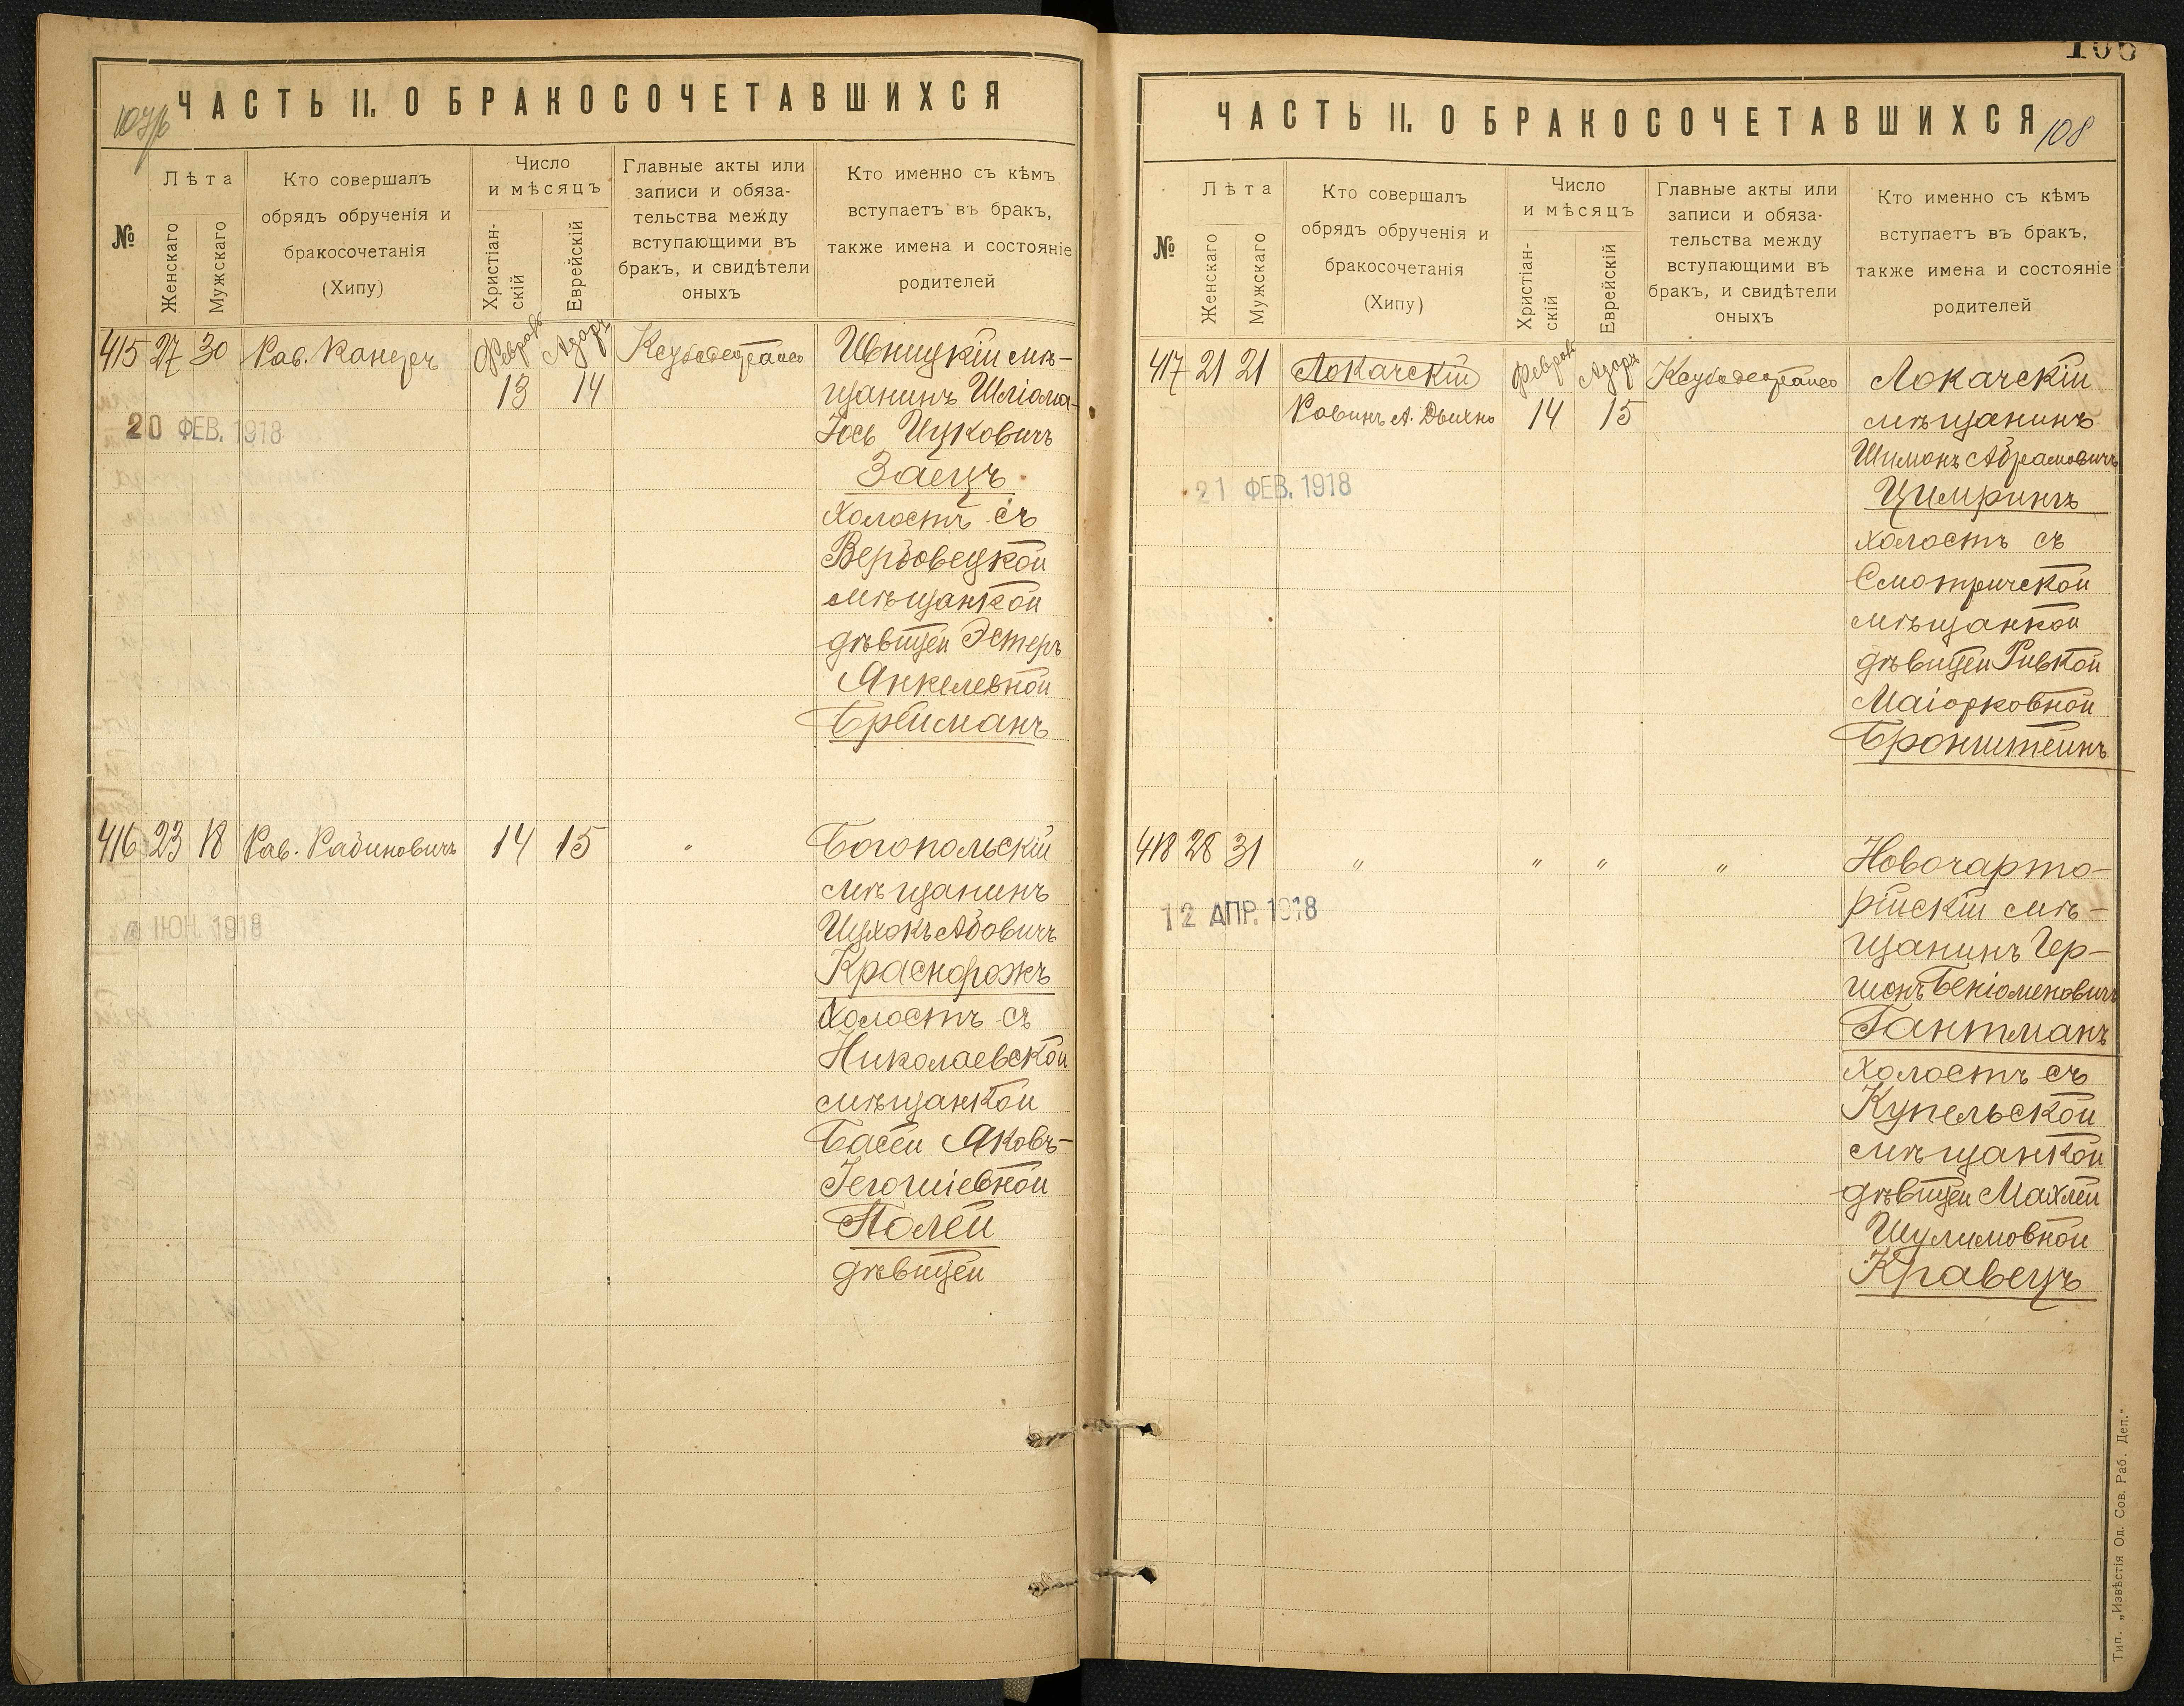 ЧАСТЬ II. О БРАКОСОЧЕТАВШИХСЯ
№
Лѣта
Женскаго
Мужскаго
Кто совершалъ
обрядъ обрученія и
бракосочетанія
(Хипу)
Число
и мѣсяцъ
Христіан-
скій
Еврейскій
Главные акты или
записи и обяза-
тельства между
вступающими въ
бракъ, и свидѣтели
оныхъ
Кто именно съ кѣмъ
вступаетъ въ бракъ,
также имена и состояніе
родителей
415 27 30 Рав. Канеръ Февраль 13 Адаръ 14
Ивницкій мѣ-
щанинъ Шліома-
Іось Ицковичъ
Заецъ
холостъ съ
Вербовецкой
мѣщанкой
дѣвицей Эстеръ
Янкелевной
Брейманъ
20 ФЕВ. 1918
416 23 18 Рав. Рабиновичъ 14 15 "
Богопольскій
мѣщанинъ
Ицхокъ Абовичъ
Краснорожъ
холостъ съ
Николаевской
мѣщанкой
Басей Яковъ-
Іегошіевной
Полей
дѣвицей
ИЮН. 1918
108
ЧАСТЬ II. О БРАКОСОЧЕТАВШИХСЯ
108
№
Лѣта
Женскаго
Мужскаго
Кто совершалъ
обрядъ обрученія и
бракосочетанія
(Хипу)
Число
и мѣсяцъ
Христіан-
скій
Еврейскій
Главные акты или
записи и обяза-
тельства между
вступающими въ
бракъ, и свидѣтели
оныхъ
Кто именно съ кѣмъ
вступаетъ въ бракъ,
также имена и состояніе
родителей
417 21 21 Локачскій Февраль Адаръ
Равинъ А. Дыхно 14 15
Локачскій
мѣщанинъ
Шимонъ Абрамовичъ
Цимрингъ
холостъ съ
Смотричской
мѣщанкой
дѣвицей Ривкой
Маіорковной
Бронштейнъ
21 ФЕВ. 1918
418 28 31 " " " "
Новочарто-
рійскій мѣ-
щанинъ Гер-
шонъ Беніоменовичъ
Гантманъ
холостъ съ
Купельской
мѣщанкой
дѣвицей Махлей
Шулимовной
Кравецъ
12 АПР. 1918
Тип. „Извѣстія Од. Сов. Раб. Деп.“